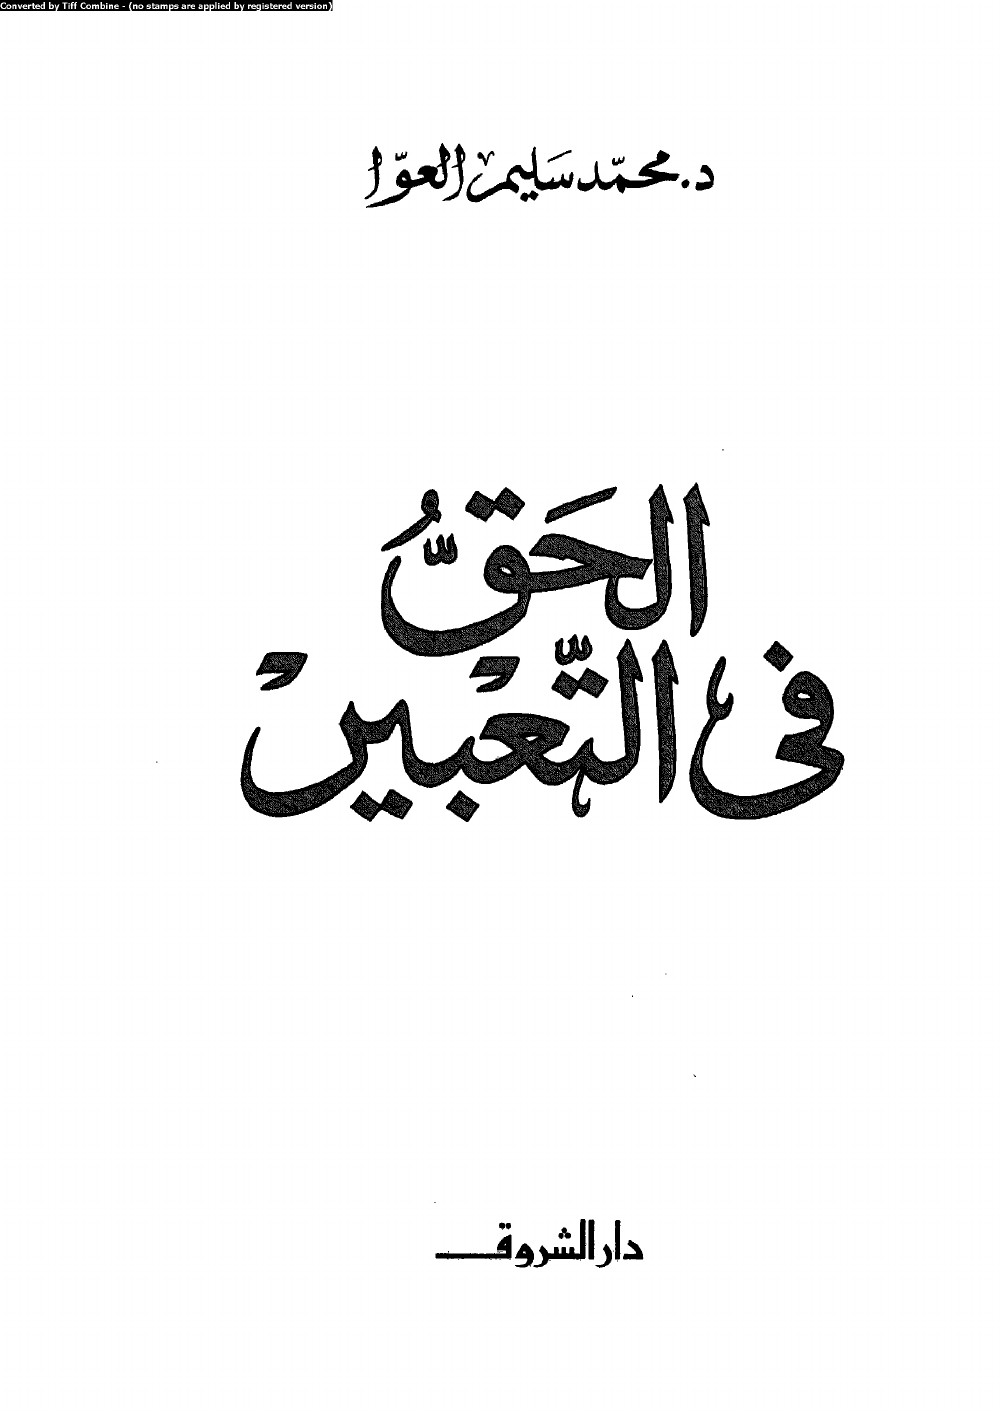 Converted by Tiff Combine - (no stamps are applied by registered version)
د. محمّد سَليم العوّا
الحَقُّ
فى التَّعْبِيرْ
دار الشروق